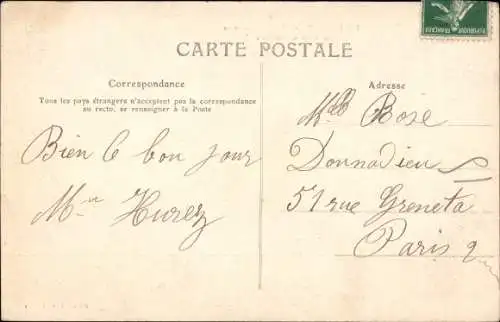 RÉPUBLIQUE FRANÇAISE
CARTE POSTALE
Correspondance
Tous les pays étrangers n'acceptent pas la correspondance
au recto, se renseigner à la Poste
Bien le bon jour
Mme Hurez
Adresse
Mlle Rose
Donnadieu
51 rue Greneta
Paris 2